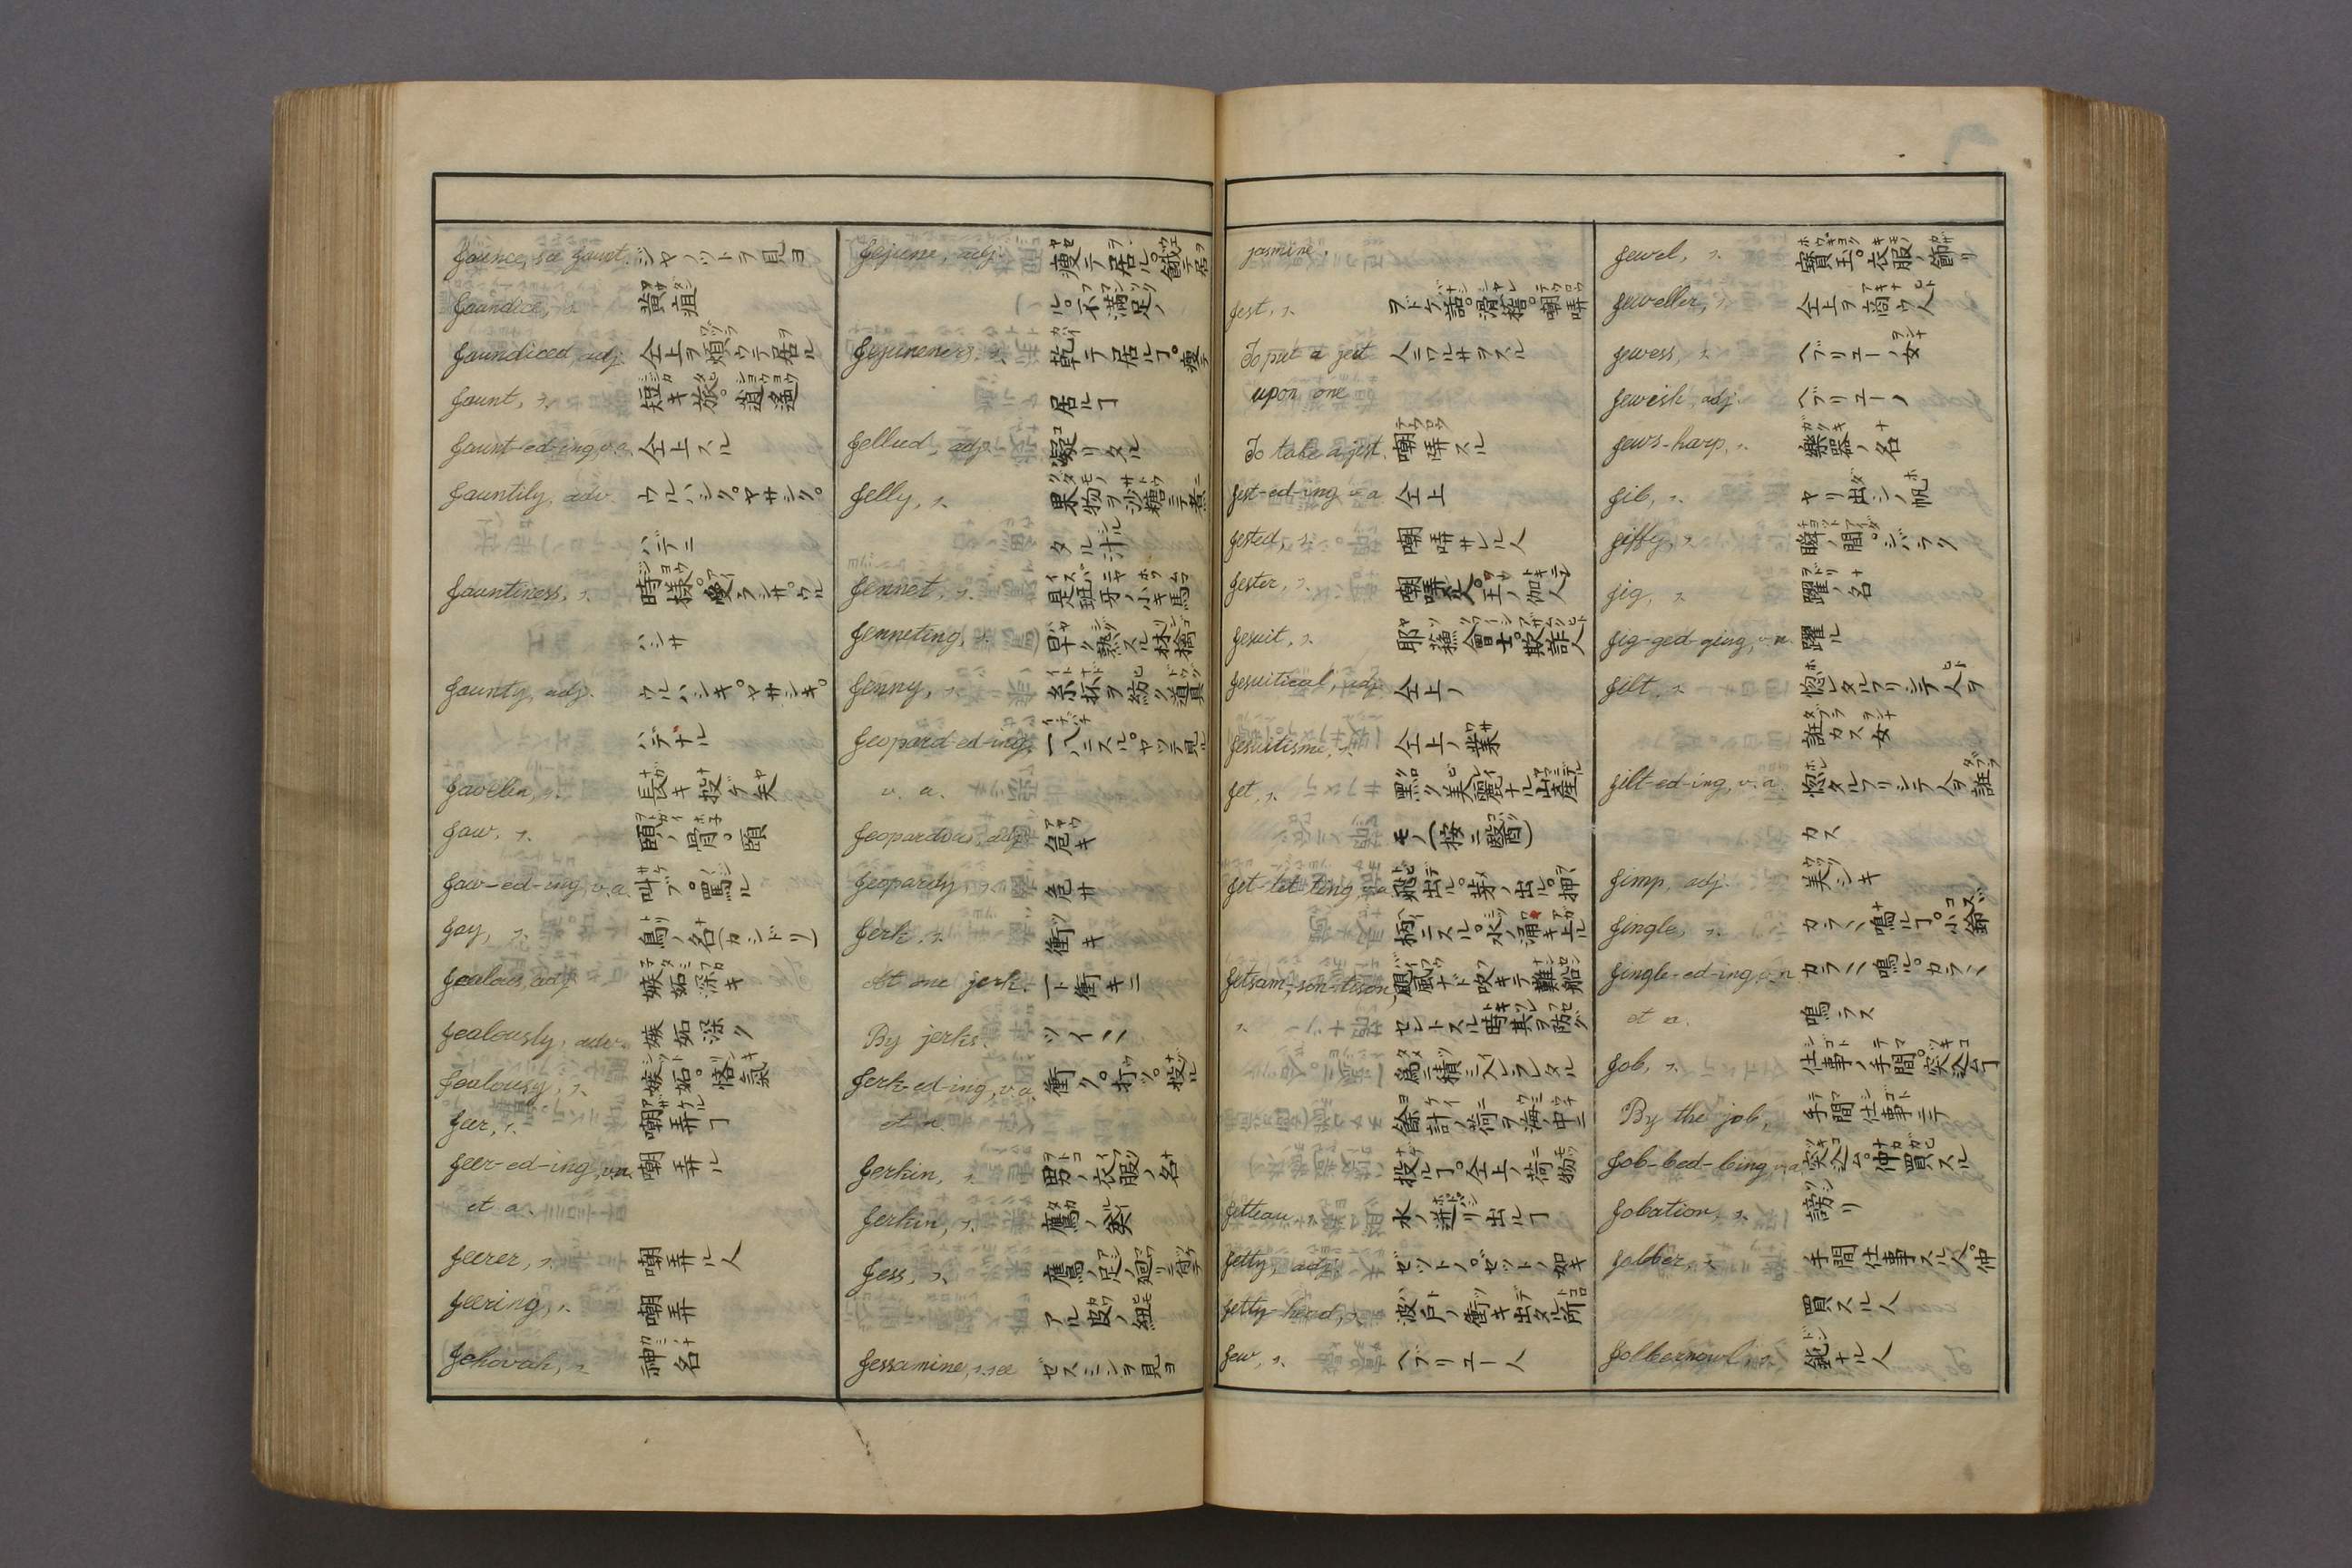 Jaunce, see Jaunt. ジヤノツトヲ見ヨ
Jaundice, s. 黄疸
Jaundiced, adj. 仝上ヲ煩ウテ居ル
Jaunt, s. 短キ旅。逍遙
Jaunt-ed-ing, v.a. 仝上スル
Jauntily, adv. ウルハシク。ヤサシク。
ハデニ
Jauntiness, s. 時様。愛ラシサ。ウル
ハシサ
Jaunty, adj. ウルハシキ。ヤサシキ。
ハデナル
Javelin, s. 長キ投ゲ矢
Jaw, s. 頤ノ骨。頤
Jaw-ed-ing, v.a. 叫ブ。罵ル
Jay, s. 鳥ノ名(カシドリ)
Jealous, adj. 嫉妬深キ
Jealously, adv. 嫉妬深ク
Jealousy, s. 嫉妬。悋氣
Jeer, s. 嘲弄ルヿ
Jeer-ed-ing, v.n. 嘲弄ル
et a.
Jeerer, s. 嘲弄ル人
Jeering, s. 嘲弄
Jehovah, s. 神ノ名
Jejune, adj. 瘦テ居ル。餓テ居
ル。不滿足ノ
Jejuneness, s. 乾テ居ルヿ。瘦テ
居ルヿ
Jellied, adj. 凝リタル
Jelly, s. 果物ヲ沙糖ニテ煮
タル汁
Jennet, s. 是班牙ノ小キ馬
Jenneting, s. 早ク熟スル林檎
Jenny, s. 糸抔ヲ紡ク道具
Jeopard-ed-ing, 一八ニスル。ヤツテ見ル
v. a.
Jeopardous, adj. 危キ
Jeopardy, s. 危サ
Jerk, s. 衝キ
At one jerk. 一ト衝キニ
By jerks.
Jerk-ed-ing, v.a. 衝ク。打ツ。投ル
et n.
Jerkin, s. 男ノ衣服ノ名
Jerkin, s. 鷹ノ
Jess, s. 鷹ノ足ノ廻リニ
アル皮ノ紐
Jessamine, s. see ゼスミンヲ見ヨ
jasmine.
Jest, s. ヲドケ話。滑稽。嘲弄
To put a jest 人ニワルサヲスル
upon one
To take a jest. 嘲弄スル
Jest-ed-ing v.a 仝上
Jested, s. 嘲弄サレル人
Jester, s. 嘲弄人。王ノ伽人
Jesuit, s. 耶蘇會士。欺詐人
Jesuitical, adj. 仝上ノ
Jesuitisme, s. 仝上ノ業
Jet, s. 黑ク美麗ナル山産
モノ
Jet-tet-ting, v.a 飛出ル。芽ノ出ル。押
柄ニスル。水ノ涌キ上ル
Jetsam,-son-tison, 颶風ナド吹キテ難船
s. セントスル時其ヲ防グ
爲ニ積ミ入レタル
餘計ノ荷ヲ海ノ中ニ
投ルヿ。仝上ノ荷物
Jetteau, s. 水ノ迸リ出ルヿ
Jetty, adj. ゼツトノ。ゼツトノ如キ
Jetty-head, s. 波戸ノ衝キ出タル所
Jew, s. ヘブリユー人
Jewel, s. 寶玉。衣服ノ飾リ
Jeweller, s. 仝上ヲ商ウ人
Jewess, s. ヘブリユーノ女
Jewish, adj. ヘブリユーノ
Jews-harp, s. 樂器ノ名
Jib, s. ヤリ出シノ帆
Jiffy, s. 瞬ノ間。シバラク
Jig, s. 躍ノ名
Jig-ged-ging, v.n. 躍ル
Jilt, s. 惚レタルフリシテ人ヲ
誑カス女
Jilt-ed-ing, v.a. 惚タルフリシテ人ヲ誑
カス
Jimp, adj. 美シキ
Jingle, s. カラ〱鳴ルヿ。小鈴
Jingle-ed-ing, v.n カラ〱鳴ル。カラ〱
et a. 鳴ラス
Job, s. 仕事ノ手間。突込ムヿ
By the job, 手間仕事ニテ
Job-bed-bing, v.a. 突込ム。仲買スル
Jobation, s. 謗リ
Jobber, s. 手間仕事スル人。仲
買スル人
Jobbernowl, s. 鈍ナル人